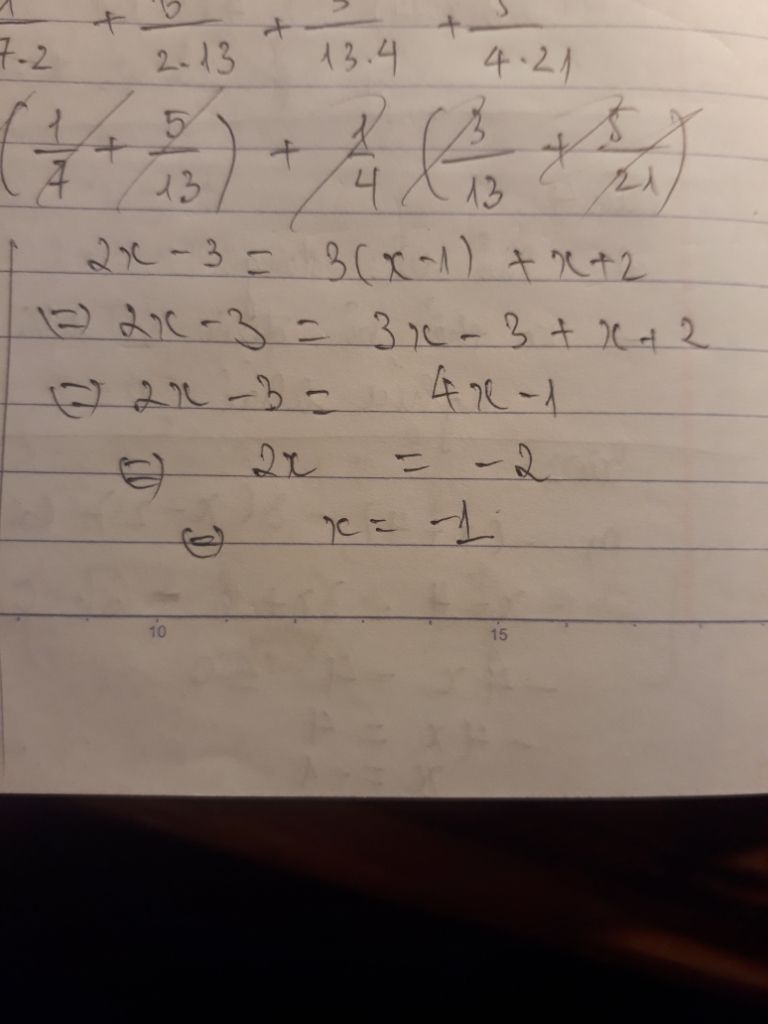 7·2 + 5/(2·13) + 3/(13·4) + 5/(4·21)
(1/7 + 5/13) + 1/4 (3/13 + 5/21)
2x - 3 = 3(x-1) + x+2
⇔ 2x - 3 = 3x - 3 + x + 2
⇔ 2x - 3 = 4x - 1
⇔ 2x = -2
⇔ x = -1
10 15